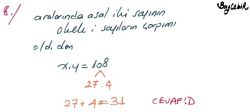 8-/ aralarında asal iki sayının
okek i sayıların çarpımı
old. dan
x.y = 108
27.4
27 + 4 = 31 CEVAP: D